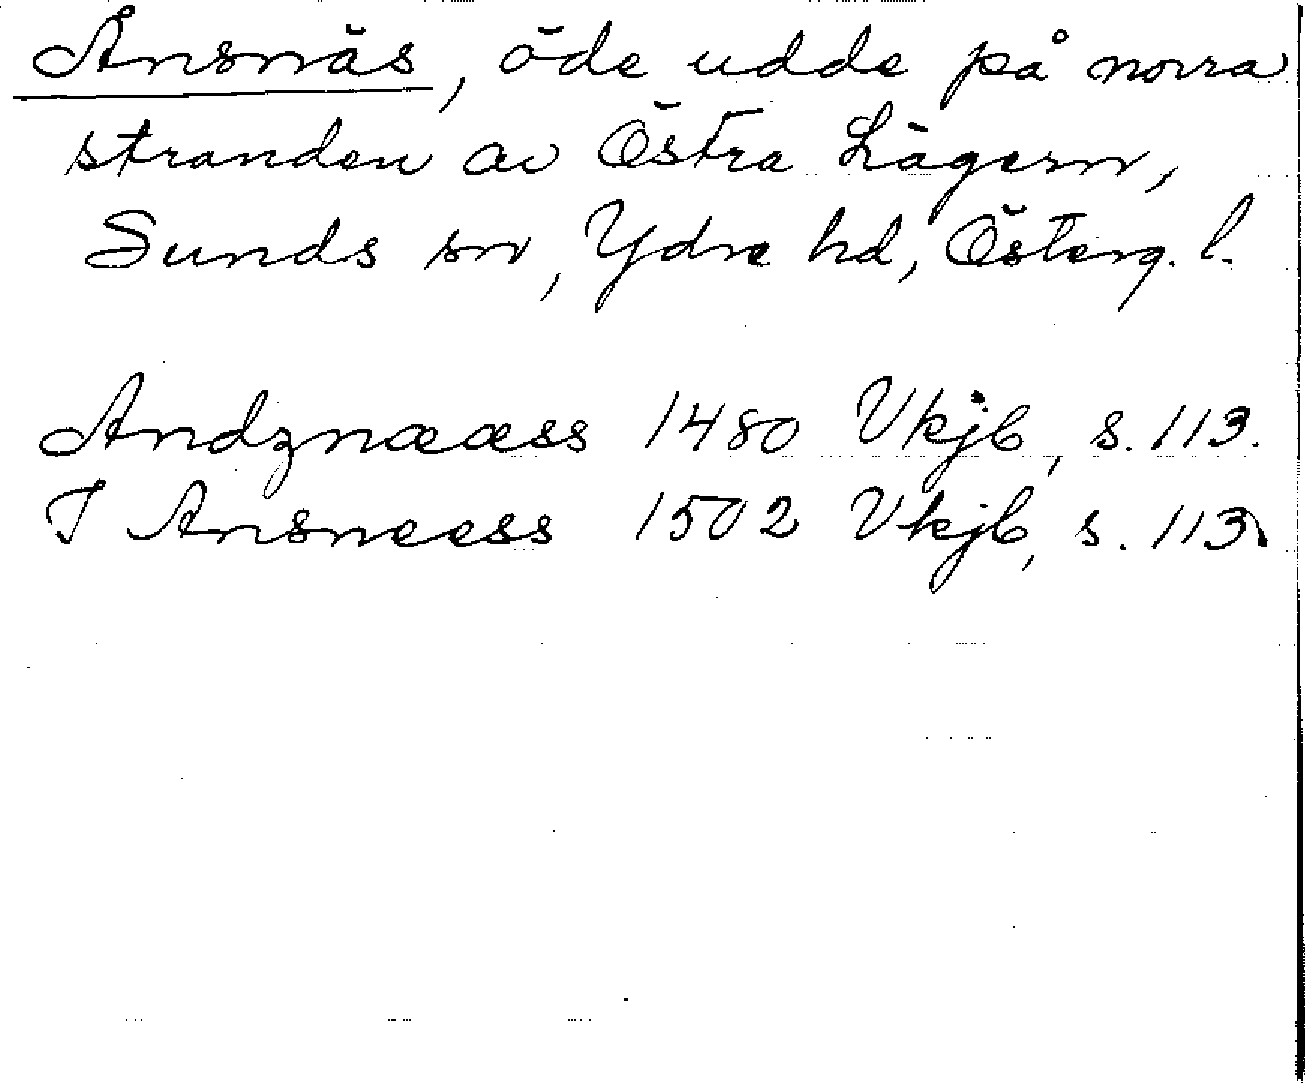 Ånsnäs, öde udde på norra
stranden av Östra Lägern,
Sunds sn, Ydre hd, Österg. l.
Andznææss 1480 Vkjb, s. 113.
J Ansneess 1502 Vkjb, s. 113.